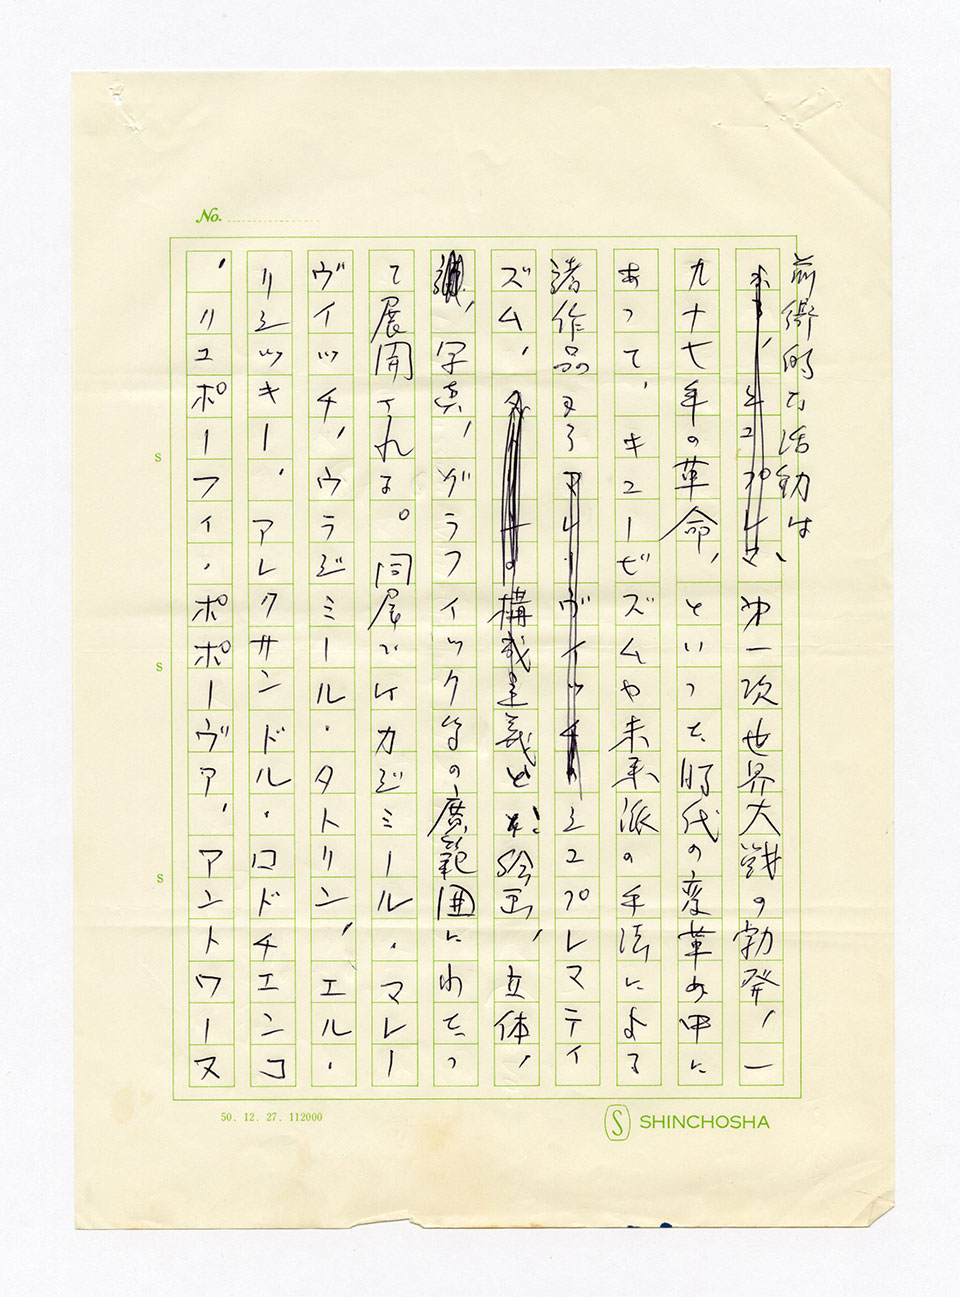 No.
前衛的な活動は
、第一次世界大戦の勃発、一
九十七年の革命、といった時代の変革の中に
あって、キュービズムや未来派の手法による
諸作品
シュプレマティ
ズム、
構成主義と
絵画、立体、
写真、グラフィック等の広範囲にわたっ
て展開される。同展ではカジミール・マレー
ヴィッチ、ウラジミール・タトリン、エル・
リシツキー、アレクサンドル・ロドチェンコ
、リュボーフィ・ポポーヴァ、アントワーヌ
S
S
S
50. 12. 27. 112000
S SHINCHOSHA